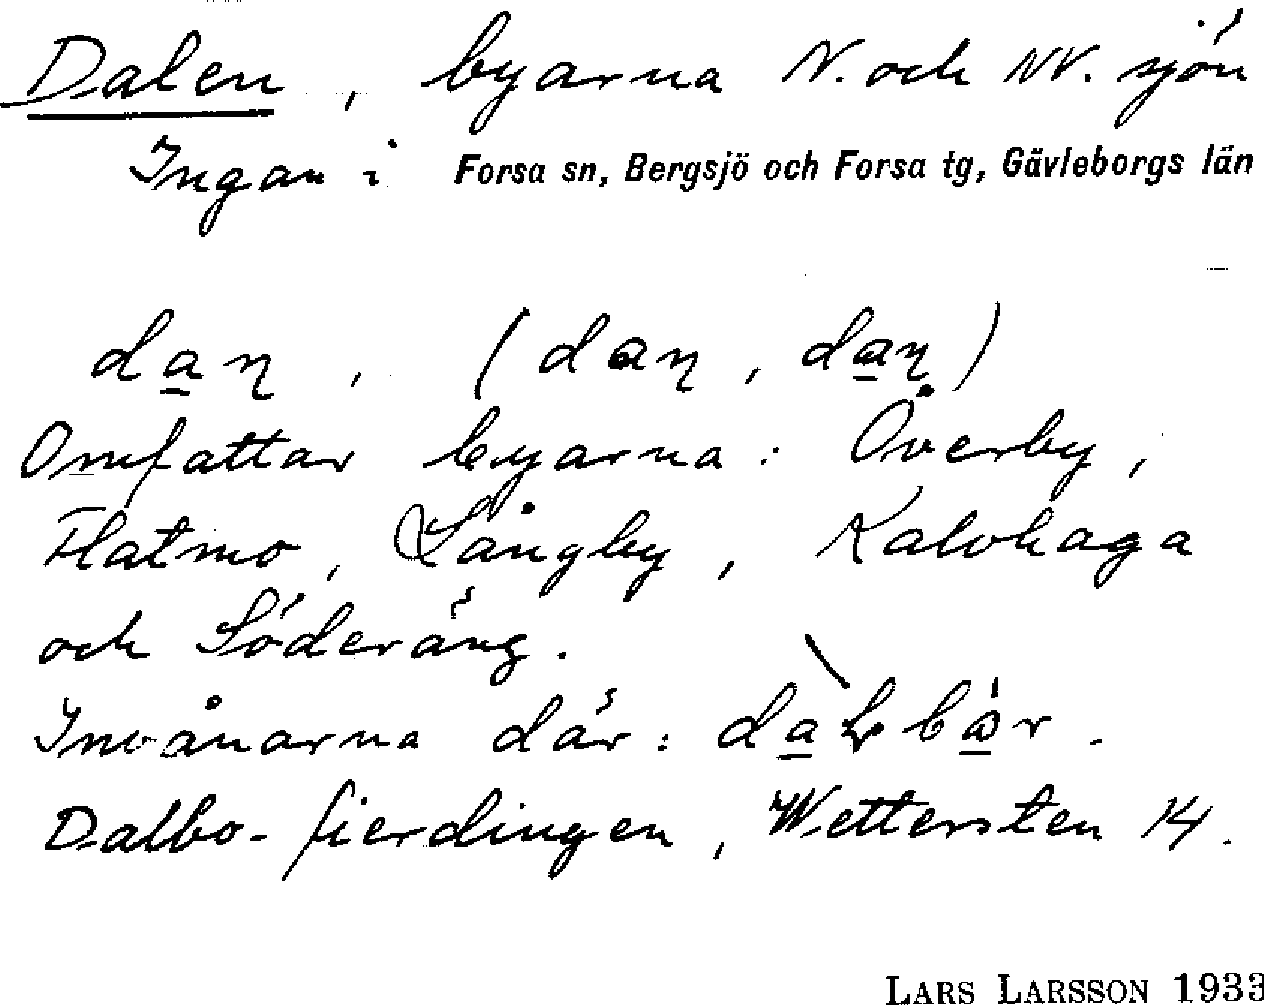 Dalen, byarna N. och NV. sjön
Ingan i Forsa sn, Bergsjö och Forsa tg, Gävleborgs län
dan, (dan, dan)
Omfattar byarna: Överby,
Flatmo, Långby, Kalvhaga
och Söderäng.
Invånarna där:
Dalbo-fierdingen, Wettersten 14.
LARS LARSSON 1933